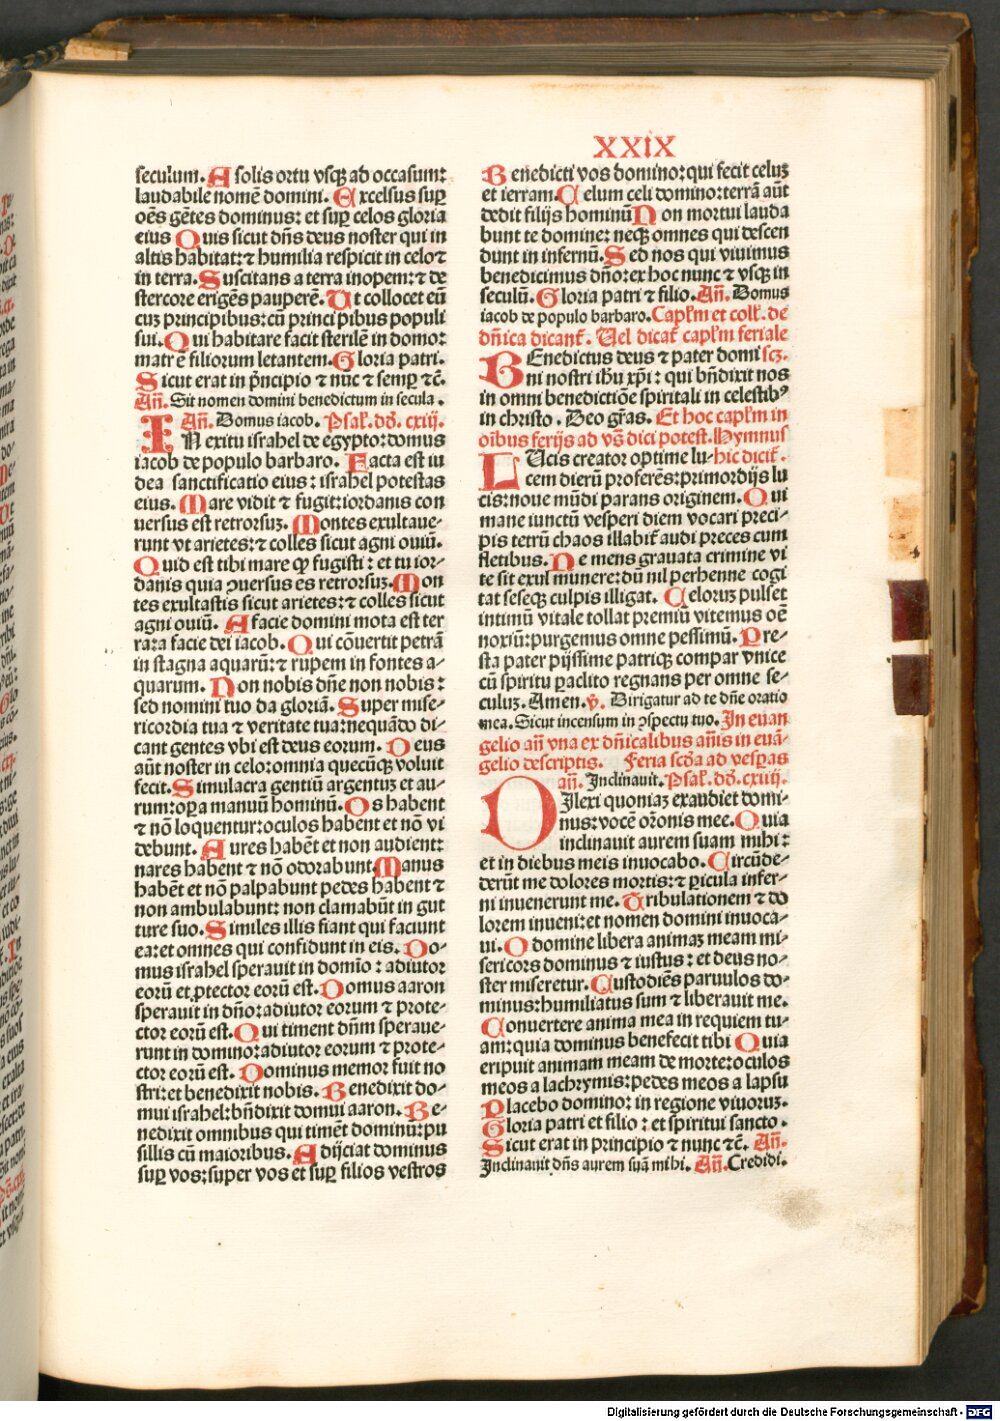 XXIX
seculum. A solis ortu vsqꝫ ad occasum:
laudabile nomē domini. Excelsus suꝑ
oēs gētes dominus: et suꝑ celos gloria
eius Quis sicut dn̄s deus noster qui in
altis habitat: ⁊ humilia respicit in celo ⁊
in terra. Suscitans a terra inopem: ⁊ de
stercore erigēs pauperē. Ut collocet eū
cuꝫ principibus: cū principibus populi
sui. Qui habitare facit sterilē in domo:
matrē filiorum letantem. Gloria patri.
Sicut erat in pͥncipio ⁊ nūc ⁊ semꝑ ⁊c̄.
Añ. Sit nomen domini benedictum in secula.
Añ. Domus iacob. Psal̄. dd̄. cxiij.
IN exitu israhel de egypto: domus
iacob de populo barbaro. Facta est iu
dea sanctificatio eius: israhel potestas
eius. Mare vidit ⁊ fugit: iordanis con
uersus est retrorsuꝫ. Montes exultaue-
runt vt arietes: ⁊ colles sicut agni ouiū.
Quid est tibi mare qꝫ fugisti: et tu ior-
danis quia ꝯuersus es retrorsuꝫ. Mon
tes exultastis sicut arietes: ⁊ colles sicut
agni ouiū. A facie domini mota est ter
ra: a facie dei iacob. Qui cōuertit petrā
in stagna aquarū: ⁊ rupem in fontes a-
quarum. Non nobis dn̄e non nobis:
sed nomini tuo da gloriā. Super mise-
ricordia tua ⁊ veritate tua: nequādo di-
cant gentes vbi est deus eorum. Deus
aūt noster in celo: omnia quecūqꝫ voluit
fecit. Simulacra gentiū argentuꝫ et au-
rum: oꝑa manuū hominū. Os habent
⁊ nō loquentur: oculos habent et nō vi
debunt. Aures habēt et non audient:
nares habent ⁊ nō odorabunt. Manus
habēt et nō palpabunt pedes habent ⁊
non ambulabunt: non clamabūt in gut
ture suo. Similes illis fiant qui faciunt
ea: et omnes qui confidunt in eis. Do-
mus israhel sperauit in domīo: adiutor
eorū et ꝓtector eorū est. Domus aaron
sperauit in dn̄o: adiutor eorum ⁊ prote-
ctor eorū est. Qui timent dn̄m speraue-
runt in domino: adiutor eorum ⁊ prote-
ctor eorū est. Dominus memor fuit no
stri: et benedixit nobis. Benedixit do-
mui israhel: bn̄dixit domui aaron. Be-
nedixit omnibus qui timēt dominū: pu
sillis cū maioribus. Adijciat dominus
suꝑ vos: super vos et suꝑ filios vestros
Benedicti vos domino: qui fecit celuꝫ
et terram. Celum celi domino: terrā aūt
dedit filijs hominū Non mortui lauda
bunt te domine: neqꝫ omnes qui descen
dunt in infernū. Sed nos qui viuimus
benedicimus dn̄o: ex hoc nunc ⁊ vsqꝫ in
seculū. Gloria patri ⁊ filio. Añ. Domus
iacob de populo barbaro. Capl̄m et coll̄. de
dn̄ica dicant̄. Uel dicat̄ capl̄m feriale
BEnedictus deus ⁊ pater domi scꝫ.
ni nostri ih̄u xp̄i: qui bn̄dixit nos
in omni benedictiōe spiritali in celestibꝰ
in christo. Deo gr̄as. Et hoc capl̄m in
oībus ferijs ad vs̄ dici potest. Hymnus
LUcis creator optime lu- hic dicit̄.
cem dierū proferēs: primordijs lu
cis: noue mūdi parans originem. Qui
mane iunctū vesperi diem vocari preci-
pis tetrū chaos illabit̄ audi preces cum
fletibus. Ne mens grauata crimine vi
te sit exul munere: dū nil perhenne cogi
tat seseqꝫ culpis illigat. Celoruꝫ pulset
intimū vitale tollat premiū vitemus oē
noxiū: purgemus omne pessimū. Pre-
sta pater pijssime patriqꝫ compar vnice
cū spiritu ꝑaclito regnans per omne se-
culuꝫ. Amen. v̄. Dirigatur ad te dn̄e oratio
mea. Sicut incensum in ꝯspectu tuo. In euan
gelio añ vna ex dn̄icalibus an̄is in euā-
gelio descriptis. Feria scd̄a ad vesꝑas
añ. Inclinauit. Psal̄. dd̄. cxiiij.
DIlexi quoniaꝫ exaudiet domi-
nus: vocē or̄onis mee. Quia
inclinauit aurem suam mihi:
et in diebus meis inuocabo. Circūde-
derūt me dolores mortis: ⁊ ꝑicula infer-
ni inuenerunt me. Tribulationem ⁊ do
lorem inueni: et nomen domini inuoca-
ui. O domine libera animaꝫ meam mi-
sericors dominus ⁊ iustus: et deus no-
ster miseretur. Custodiēs paruulos do-
minus: humiliatus sum ⁊ liberauit me.
Conuertere anima mea in requiem tu-
am: quia dominus benefecit tibi Quia
eripuit animam meam de morte: oculos
meos a lachrymis: pedes meos a lapsu
Placebo domino: in regione viuoruꝫ.
Gloria patri et filio: et spiritui sancto.
Sicut erat in principio ⁊ nunc ⁊c̄. Añ.
Inclinauit dn̄s aurem suā mihi. Añ. Credidi.
Digitalisierung gefördert durch die Deutsche Forschungsgemeinschaft - DFG